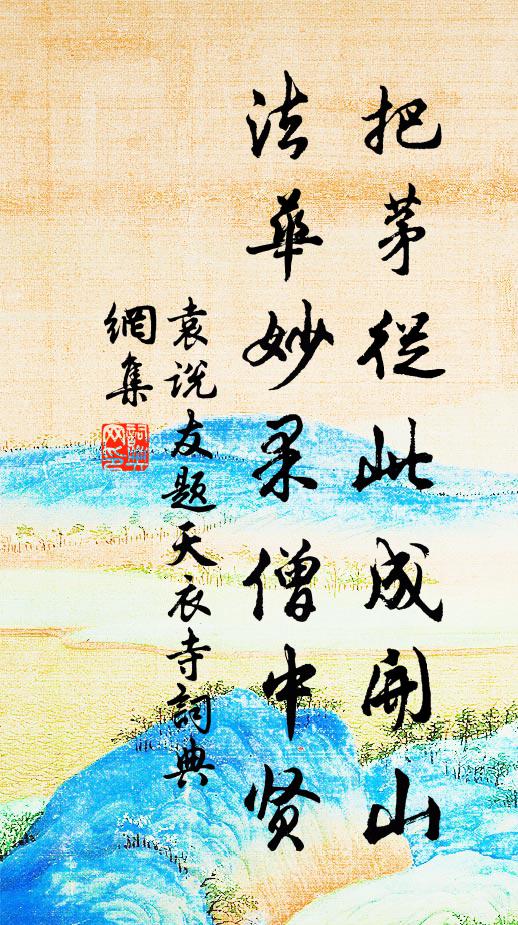 把茅從此成開山
法華妙果僧中贤
袁说友題天衣寺詞典
網集